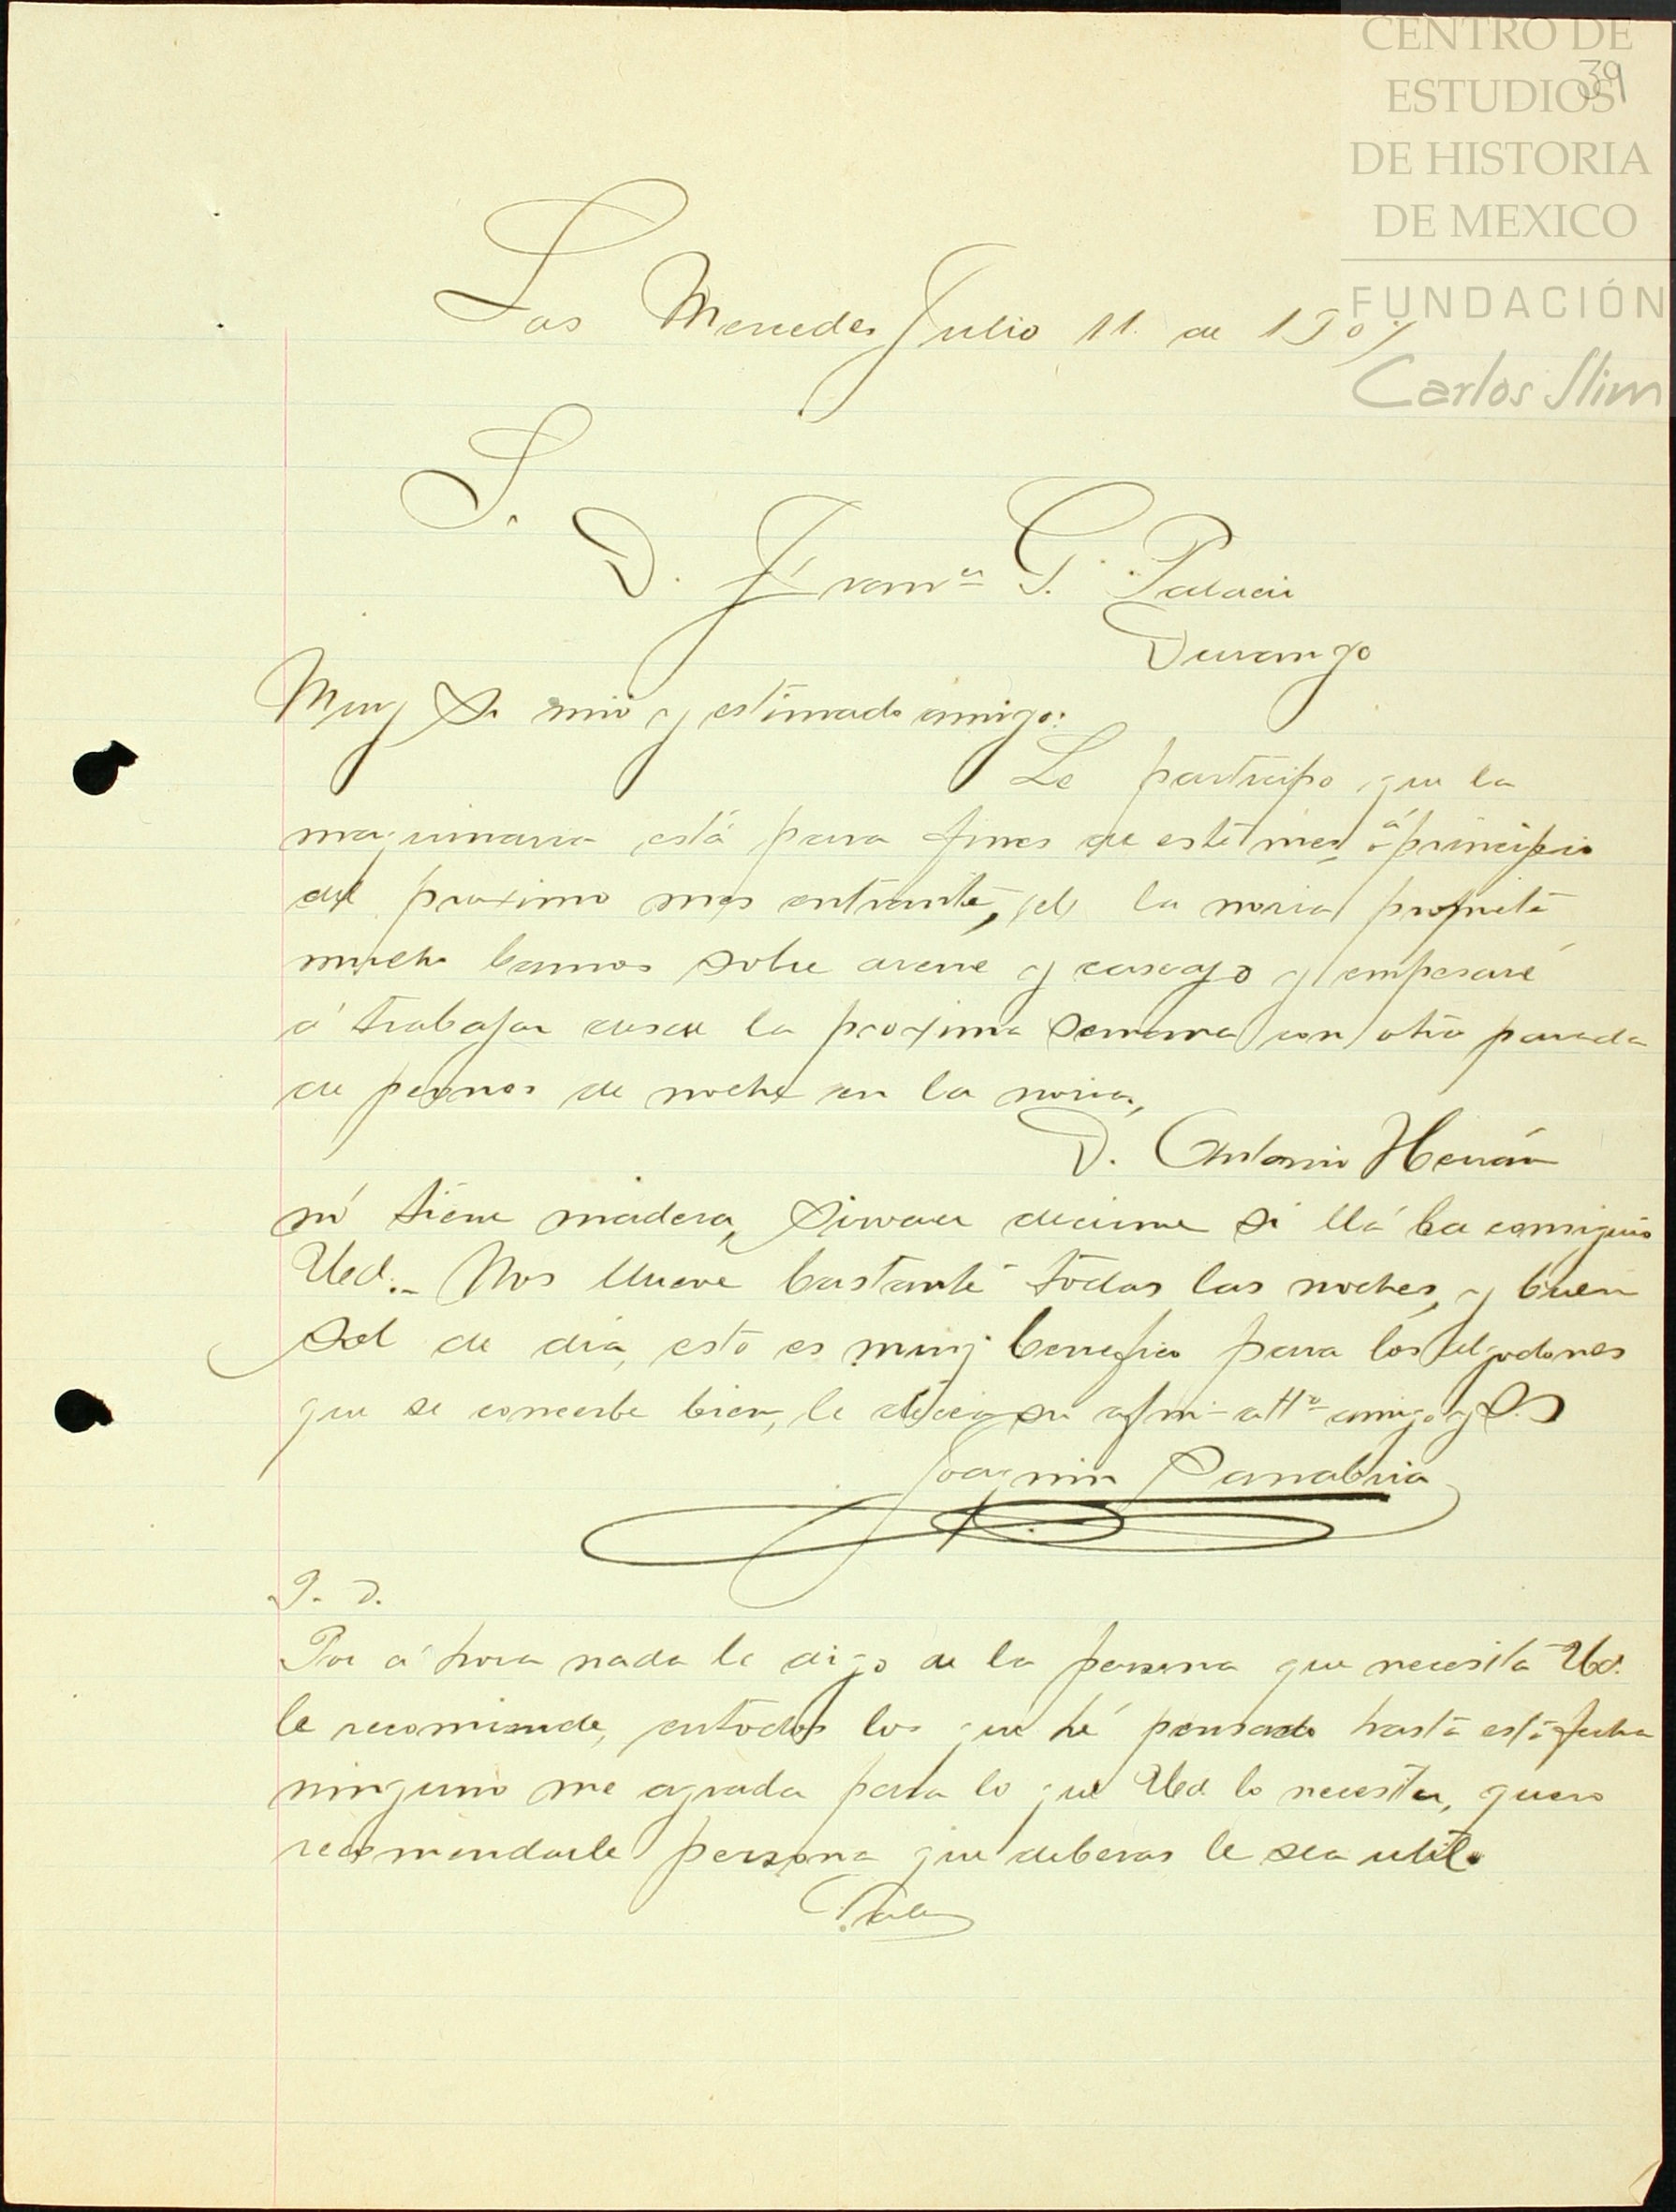 CENTRO DE
39
ESTUDIOS
DE HISTORIA
DE MEXICO
FUNDACIÓN
Carlos Slim
Las Mercedes Julio 11. de 1907
S.
D. Franco G. Palacio
Durango
Muy Sr mio y estimado amigo:
Le participo que la
maquinaria está para fines de este mes, á principio
del proximo mes entrante, la noria promete
mucho bamos sobre arena y cascajo y empesaré
á trabajar desde la proxima semana con otra parada
de peones de noche en la noria,
D. Antonio Herrán
nó tiene madera, sirvase decirme si llá la consiguio
Ued.- Nos llueve bastante todas las noches, y buen
sol de dia, esto es muy benefico para los algodones
que se conserbe bien, le decea su afmo atto amigo y S.S
Joaquin Sanabria
P. D.
Por áhora nada le digo de la persona que necesita Ud.
le recomiende, entodos los que hé pensado hasta esta fecha
ninguno me agrada para lo que Ued. lo necesita, quero
recomendarle persona que deberas le sea util.
Vale